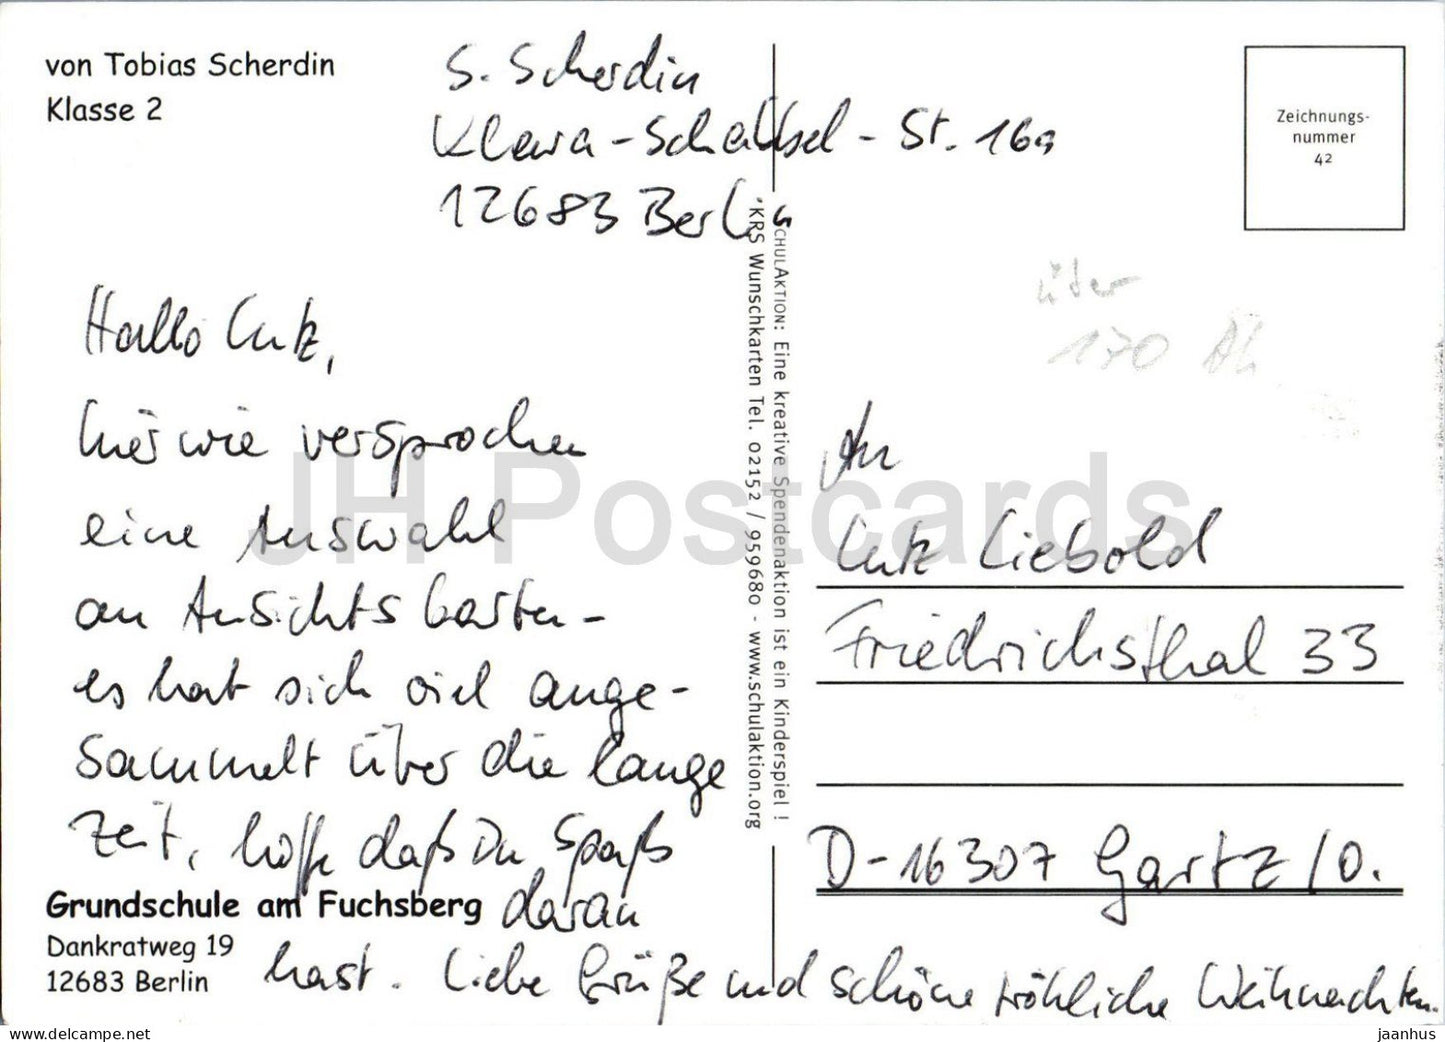 von Tobias Scherdin
Klasse 2
S. Scherdin
Klara-Schabbel-St. 16a
12683 Berlin
Zeichnungs-
nummer
42
über
170 Ak
Hallo Lutz,
hier wie versprochen
eine Auswahl
an Ansichtskarten -
es hat sich viel ange-
sammelt über die lange
Zeit, hoffe daß Du Spaß
daran
hast. Liebe Grüße und schöne fröhliche Weihnachten.
Grundschule am Fuchsberg
Dankratweg 19
12683 Berlin
SCHULAKTION: Eine kreative Spendenaktion ist ein Kinderspiel !
KRS Wunschkarten Tel. 02152 / 959680 - www.schulaktion.org
An
Lutz Liebold
Friedrichsthal 33
D-16307 Gartz/O.
JH Postcards
www.delcampe.net
jaanhus